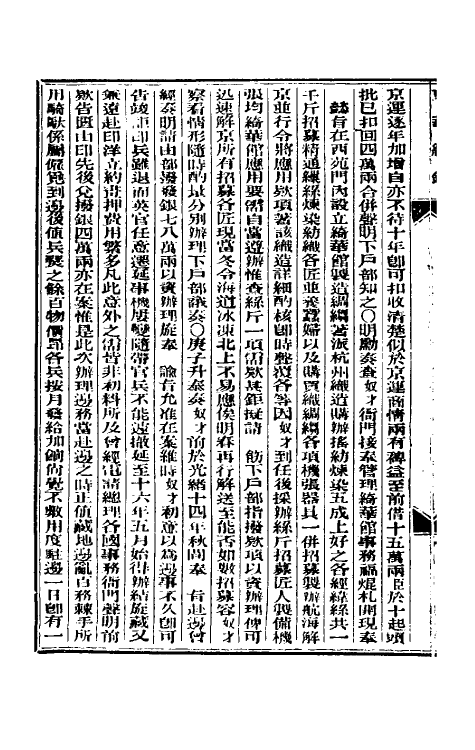 京運逐年加增自亦不待十年卽可扣收清楚似於京運商情兩有裨益至前借十五萬兩臣於十起頭
批已扣回四萬兩合併聲明下戶部知之○明勳奏查奴才衙門接奉管理綺華館事務福焜札開現奉
懿旨在西苑門內設立綺華館製造綢緞著派杭州織造購辦搖紡煉染五成上好之各經緯絲共一
千斤招募精通經絲煉染紡織各匠並養蠶婦以及購買織綢緞各項機張器具一併招募製辦航海解
京並行令將應用欵項著該織造詳細酌核卽時聲覆各等因奴才到任後採辦絲斤招募匠人製備機
張均綺華館應用要需自當遵辦惟查絲斤一項需欵甚鉅擬請　飭下戶部指撥欵項以資辦理俾可
迅速解京所有招募各匠現當冬令海道冰凍北上不易應俟明春再行解送至能否如數招募容奴才
察看情形隨時酌量分別辦理下戶部議奏○庚子升泰奏奴才前於光緒十四年秋間奉　旨赴邊曾
經奏明請由部撥發銀七八萬兩以資辦理旋奉　諭旨允准在案維時奴才初意以爲邊事不久卽可
告竣詎印兵雖退而英官任意遷延事機屢變隨帶官兵不能遠撤延至十六年五月始得辦結旋藏又
無遠赴印洋立約賞押費用繁多凡此意外之需皆非初料所及曾經電請總理各國事務衙門聲明前
欵告匱由印先後兌撥銀四萬兩亦在案惟是此次辦理邊務當赴邊之時正値藏地邊亂百務棘手所
用騎馱係屬僱覓到邊後値兵燹之餘百物價昂各兵按月發給加餉尙覺不敷用度駐邊一日卽有一